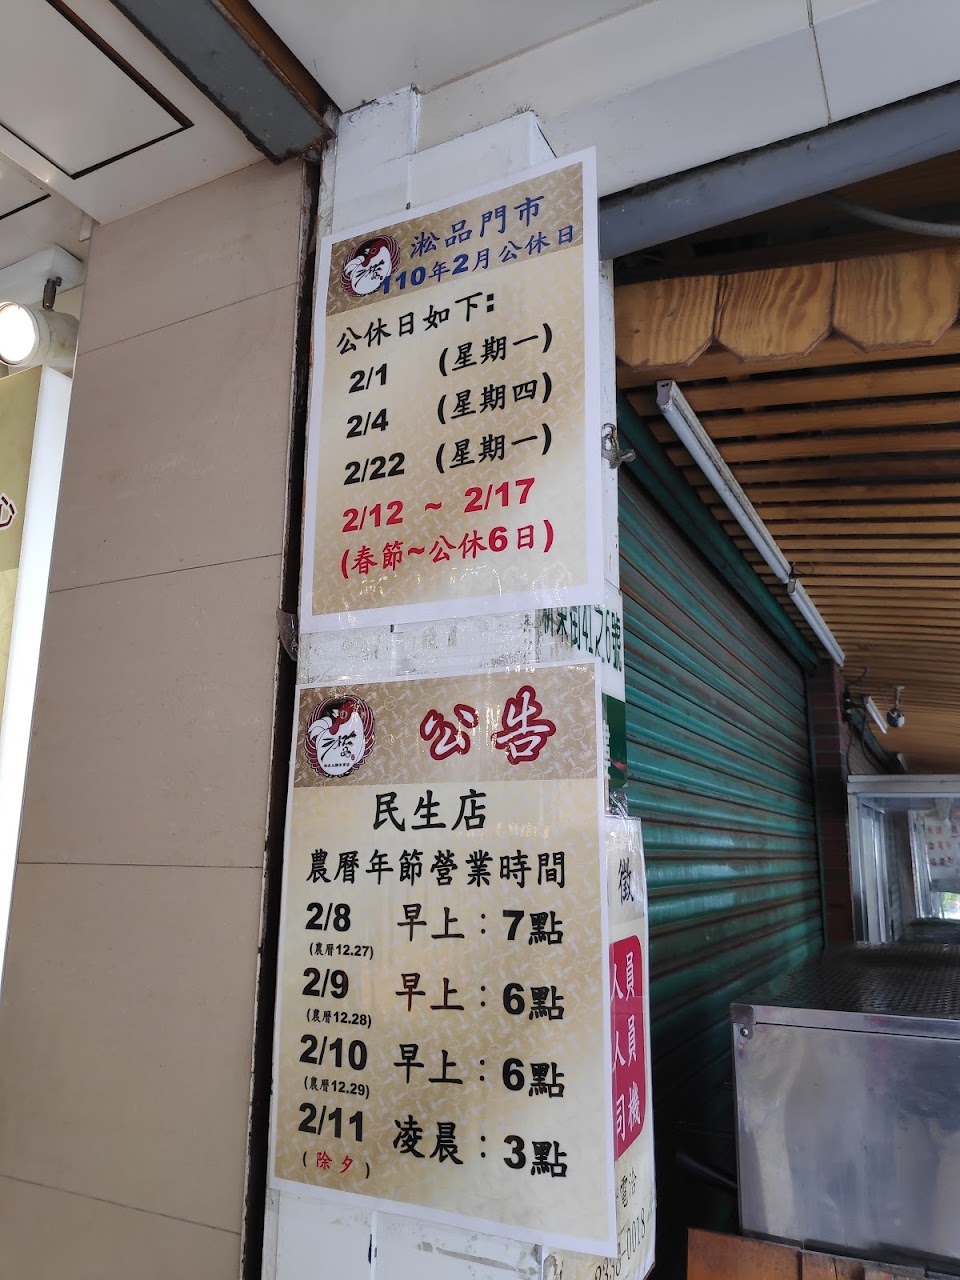 淞品門市
110年2月公休日
公休日如下:
2/1 (星期一)
2/4 (星期四)
2/22 (星期一)
2/12 ~ 2/17
(春節~公休6日)
街41之6號
公告
民生店
農曆年節營業時間
2/8 早上:7點
(農曆12.27)
2/9 早上:6點
(農曆12.28)
2/10 早上:6點
(農曆12.29)
2/11 凌晨:3點
(除夕)
徵
人員
人員
司機
電洽
心